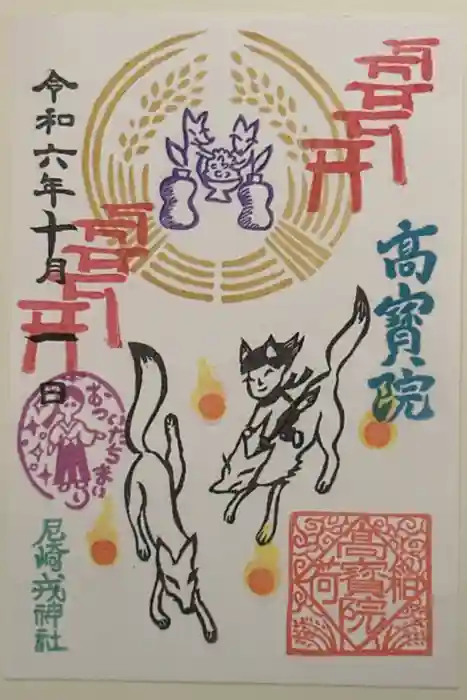 高寳院
令和六年十月一日
おついたちまいり
尼崎戎神社
高寳院
稲荷